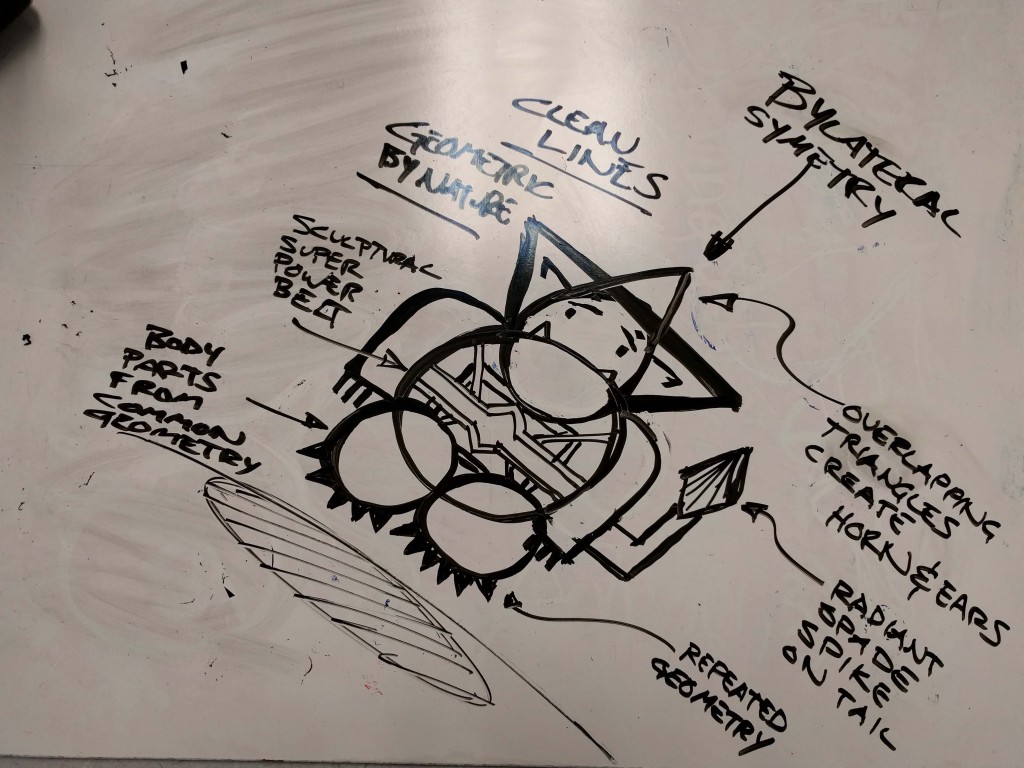 CLEAN
LINES
GEOMETRIC
BY NATURE
BYLATERAL
SYMETRY
SCULPTURAL
SUPER
POWER
BELT
BODY
PARTS
FROM
COMMON
GEOMETRY
OVERLAPPING
TRIANGLES
CREATE
HORN & EARS
RADIANT
SPADE
SPIKE
ON TAIL
REPEATED
GEOMETRY